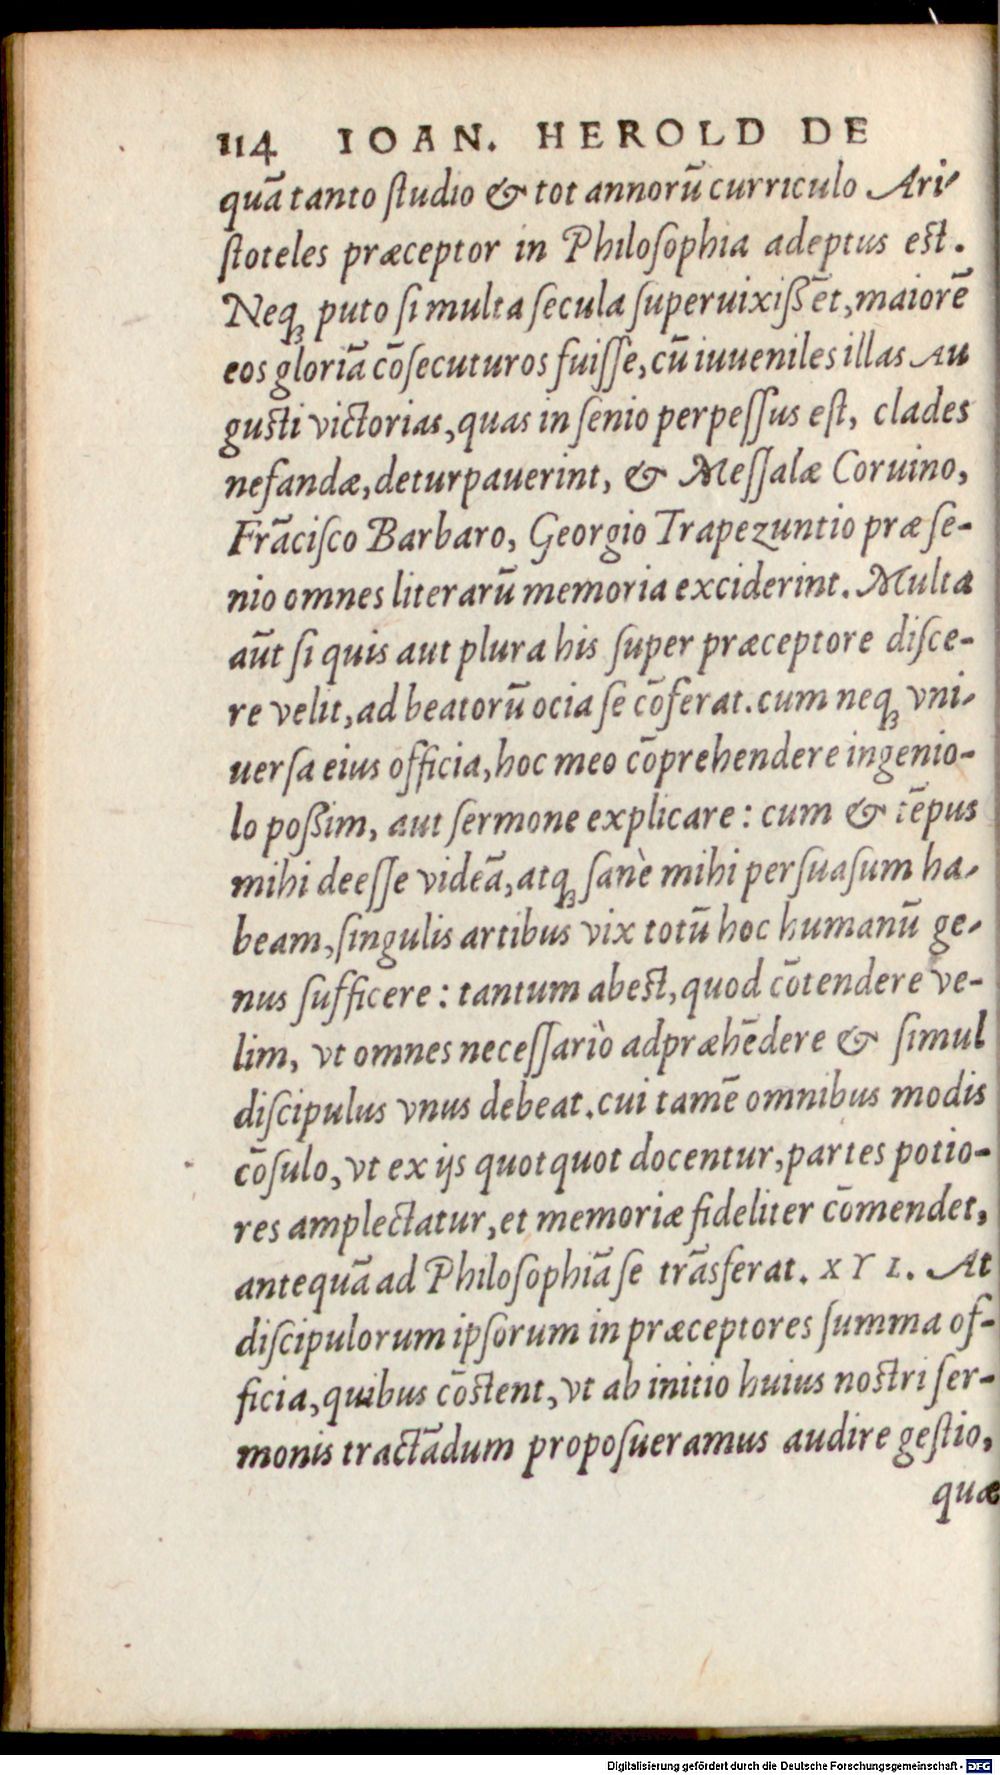 114 IOAN. HEROLD DE
quā tanto ſtudio & tot annorū curriculo Ari-
ſtoteles præceptor in Philoſophia adeptus eſt.
Neq; puto ſi multa ſecula ſuperuixiſſēt, maiorē
eos gloriā cōſecuturos fuiſſe, cū iuueniles illas Au
guſti victorias, quas in ſenio perpeſſus eſt, clades
nefandæ, deturpauerint, & Meſſalæ Coruino,
Frāciſco Barbaro, Georgio Trapezuntio præ ſe-
nio omnes literarū memoria exciderint. Multa
aūt ſi quis aut plura his ſuper præceptore diſce-
re velit, ad beatorū ocia ſe cōferat. cum neq; vni-
uerſa eius officia, hoc meo cōprehendere ingenio-
lo poßim, aut ſermone explicare: cum & tēpus
mihi deeſſe videā, atq; ſanè mihi perſuaſum ha-
beam, ſingulis artibus vix totū hoc humanū ge-
nus ſufficere: tantum abeſt, quod cōtendere ve-
lim, vt omnes neceſſariò adpræhēdere & ſimul
diſcipulus vnus debeat. cui tamē omnibus modis
cōſulo, vt ex ijs quotquot docentur, partes potio-
res amplectatur, et memoriæ fideliter cōmendet,
antequā ad Philoſophiā ſe trāsferat. XYI. At
diſcipulorum ipſorum in præceptores ſumma of-
ficia, quibus cōſtent, vt ab initio huius noſtri ſer-
monis tractādum propoſueramus audire geſtio,
quæ
Digitalisierung gefördert durch die Deutsche Forschungsgemeinschaft - DFG